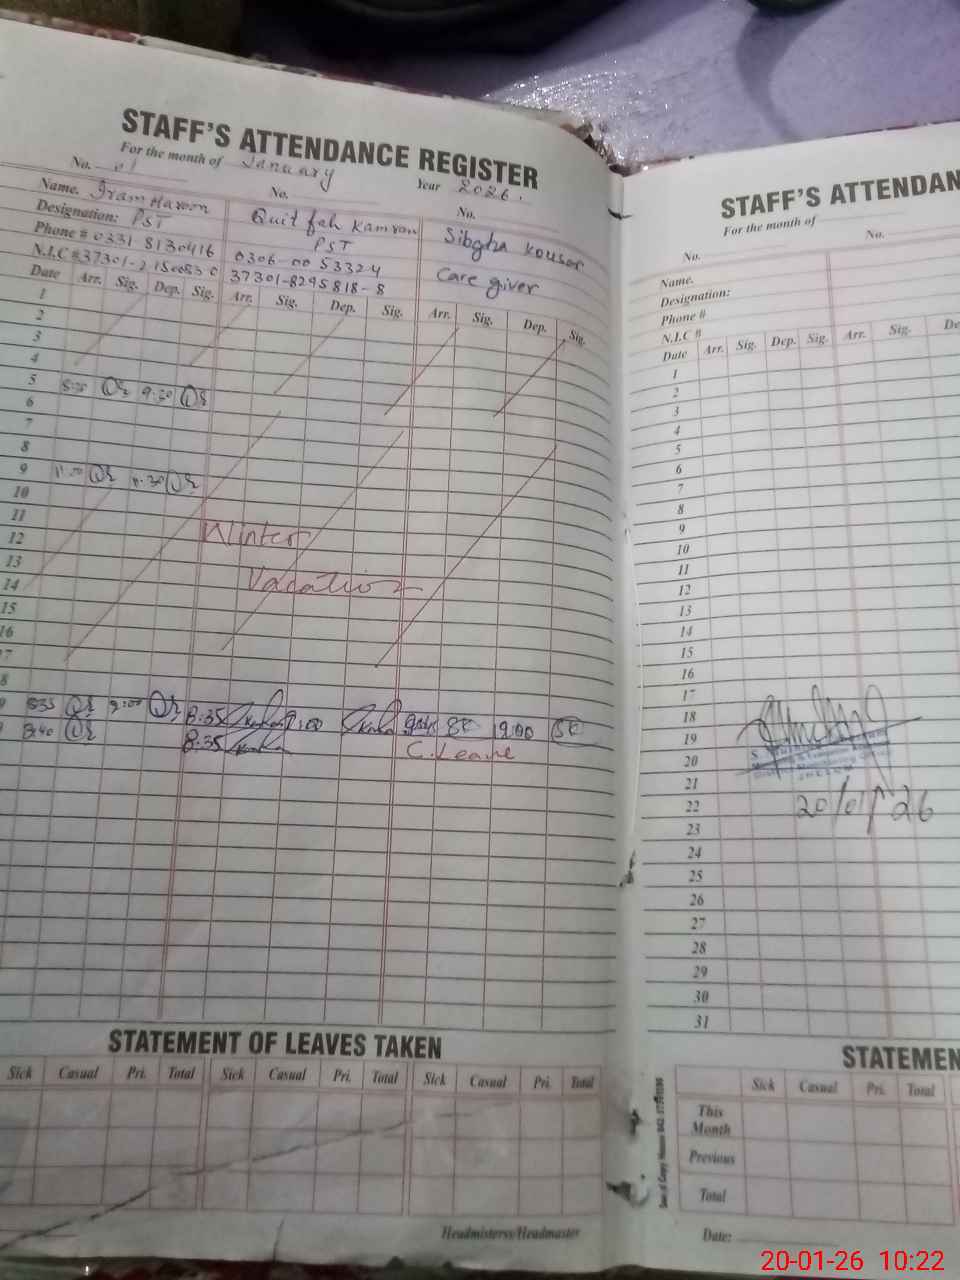 STAFF'S ATTENDANCE REGISTER
For the month of January Year 2026.
No. 01 No. No.
Name. Iram Haroon
Designation: PST
Phone # 0331 8130416
N.I.C #37301-2
Quit feh Kamran
PST
0306-0053324
37301-8295818-8
Sibgha kousar
Care giver
Date Arr. Sig. Dep. Sig. Arr. Sig. Dep. Sig. Arr. Sig. Dep. Sig.
1
2
3
4
5
6
7
8
9 11:00 11:30
10
11
12 Winter
13
14 Vacation
15
16
17
8
835 9:00 8:35
8:40 8:35 C.Leave
STATEMENT OF LEAVES TAKEN
Sick Casual Pri. Total Sick Casual Pri. Total Sick Casual Pri. Total
Headmisterss/Headmaster
STAFF'S ATTENDAN
For the month of
No. No.
Name.
Designation:
Phone #
N.I.C #
Date Arr. Sig. Dep. Sig. Arr. Sig. De
1
2
3
4
5
6
7
8
9
10
11
12
13
14
15
16
17
18
19
20
21
22 20/01/26
23
24
25
26
27
28
29
30
31
STATEMEN
Sick Casual Pri. Total
This
Month
Previous
Total
Date:
20-01-26 10:22